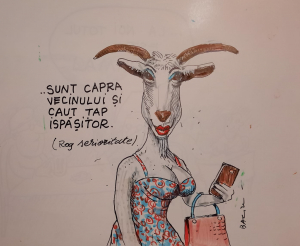 ..SUNT CAPRA
VECINULUI ȘI
CAUT TAP
ISPĂȘITOR.
(Rog seriozitate)